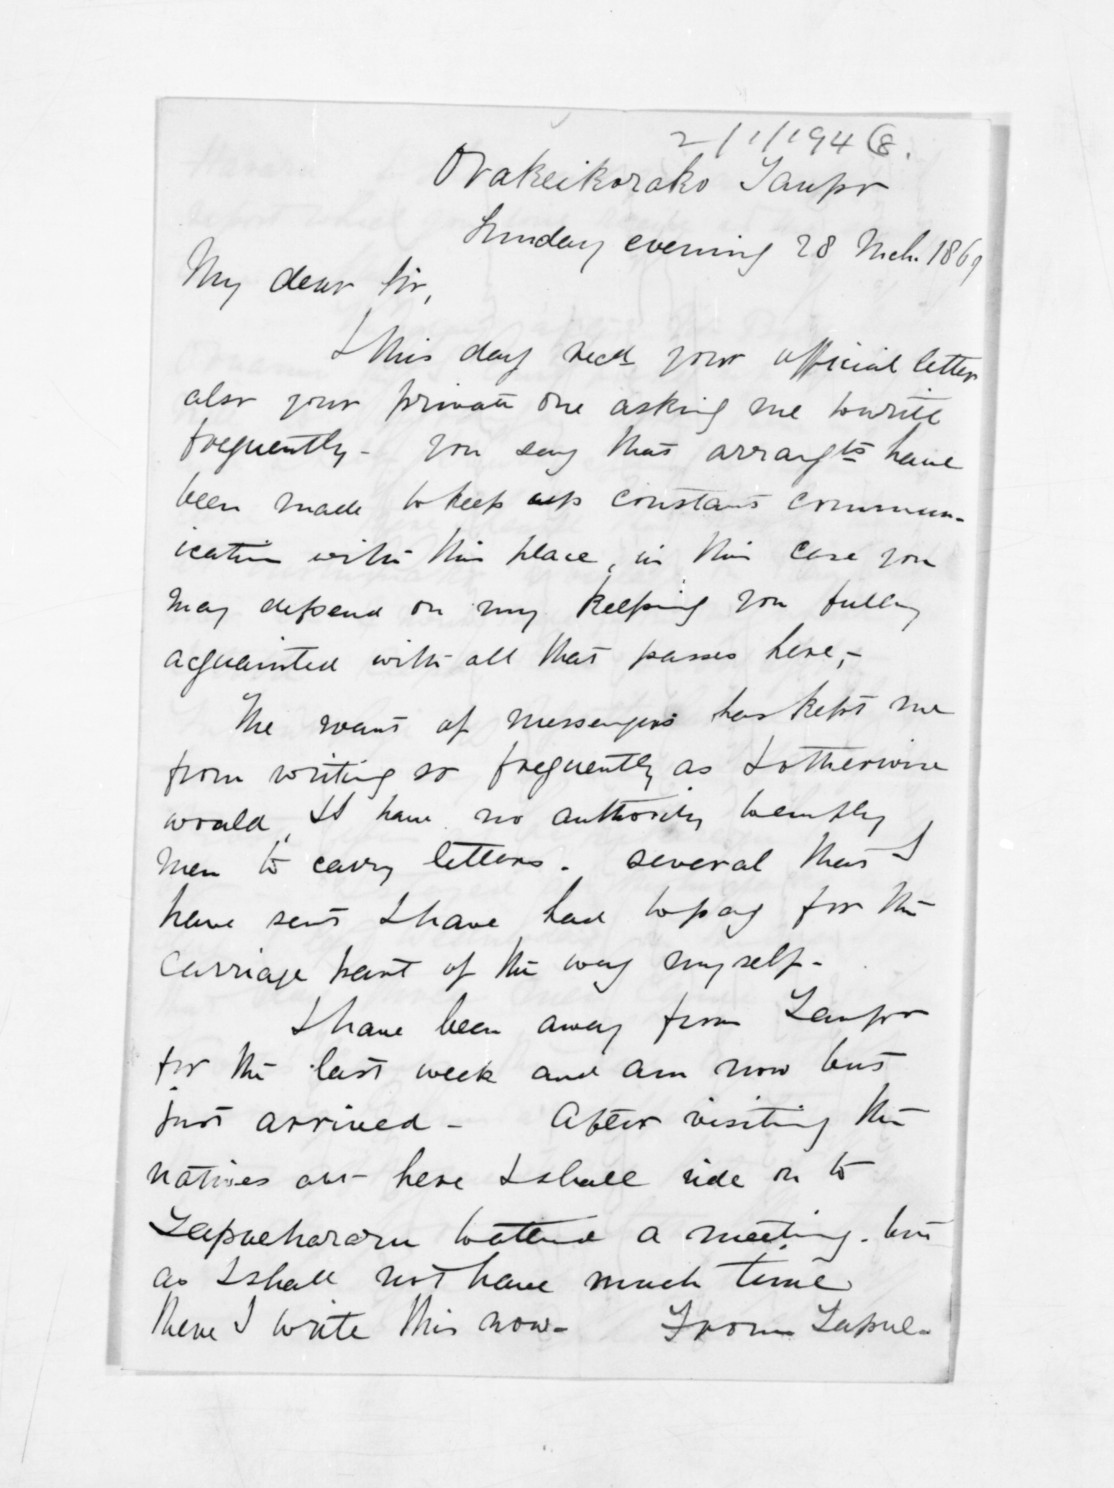 2/1/194 (8.
Orakeikorako Taupo
Sunday evening 28 Mch. 1869
My dear Sir,
I this day recd your official letter
also your private one asking me to write
frequently - you say that arrangts have
been made to keep up constant commun-
ication with this place, in this case you
may depend on my keeping you fully
acquainted with all that passes here,-
The want of messengers has kept me
from writing so frequently as I otherwise
would, I have no authority to employ
men to carry letters. several that I
have sent I have had to pay for the
carriage part of the way myself -
I have been away from Taupo
for the last week and am now but
just arrived - After visiting the
natives out here I shall ride on to
Tapuehararu to attend a meeting. but
as I shall not have much time
there I write this now - From Tapue-